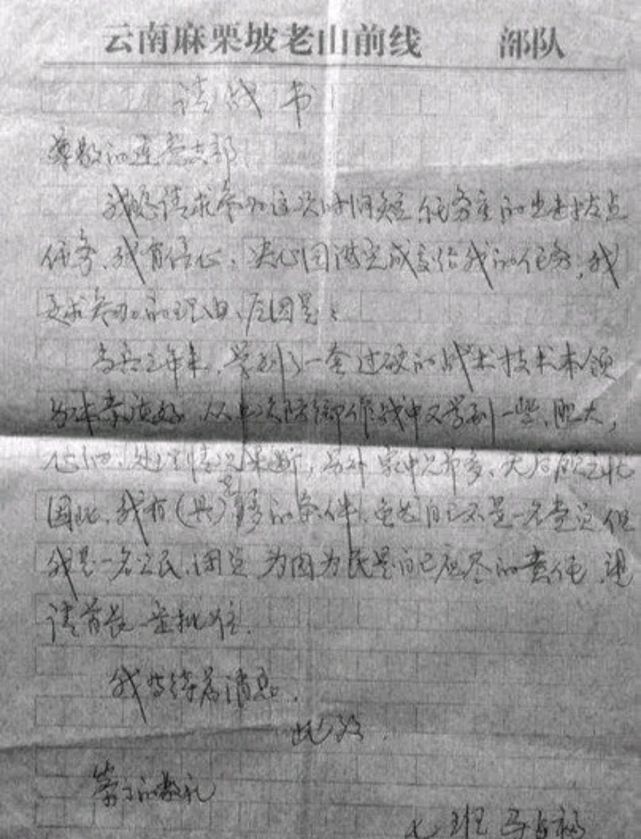 云南麻栗坡老山前线 部队
请战书
尊敬的连党支部
我愿请求参加这次时间短任务重的出击拔点
任务，我有信心，决心圆满完成交给我的任务，我
要求参加的理由、原因是：
当兵三年来，学到了一套过硬的战术技术本领
身体素质好，从在防御作战中又学到一些，胆大，
心细，处理情况果断，另外家中兄弟多，无后顾之忧
因此，我有(具)的条件，虽然自己不是一名党员但
我是一名公民、团员 为国为民是自己应尽的责任，望
请首长一定批准。
我等待着消息。
此致
崇高的敬礼
七班